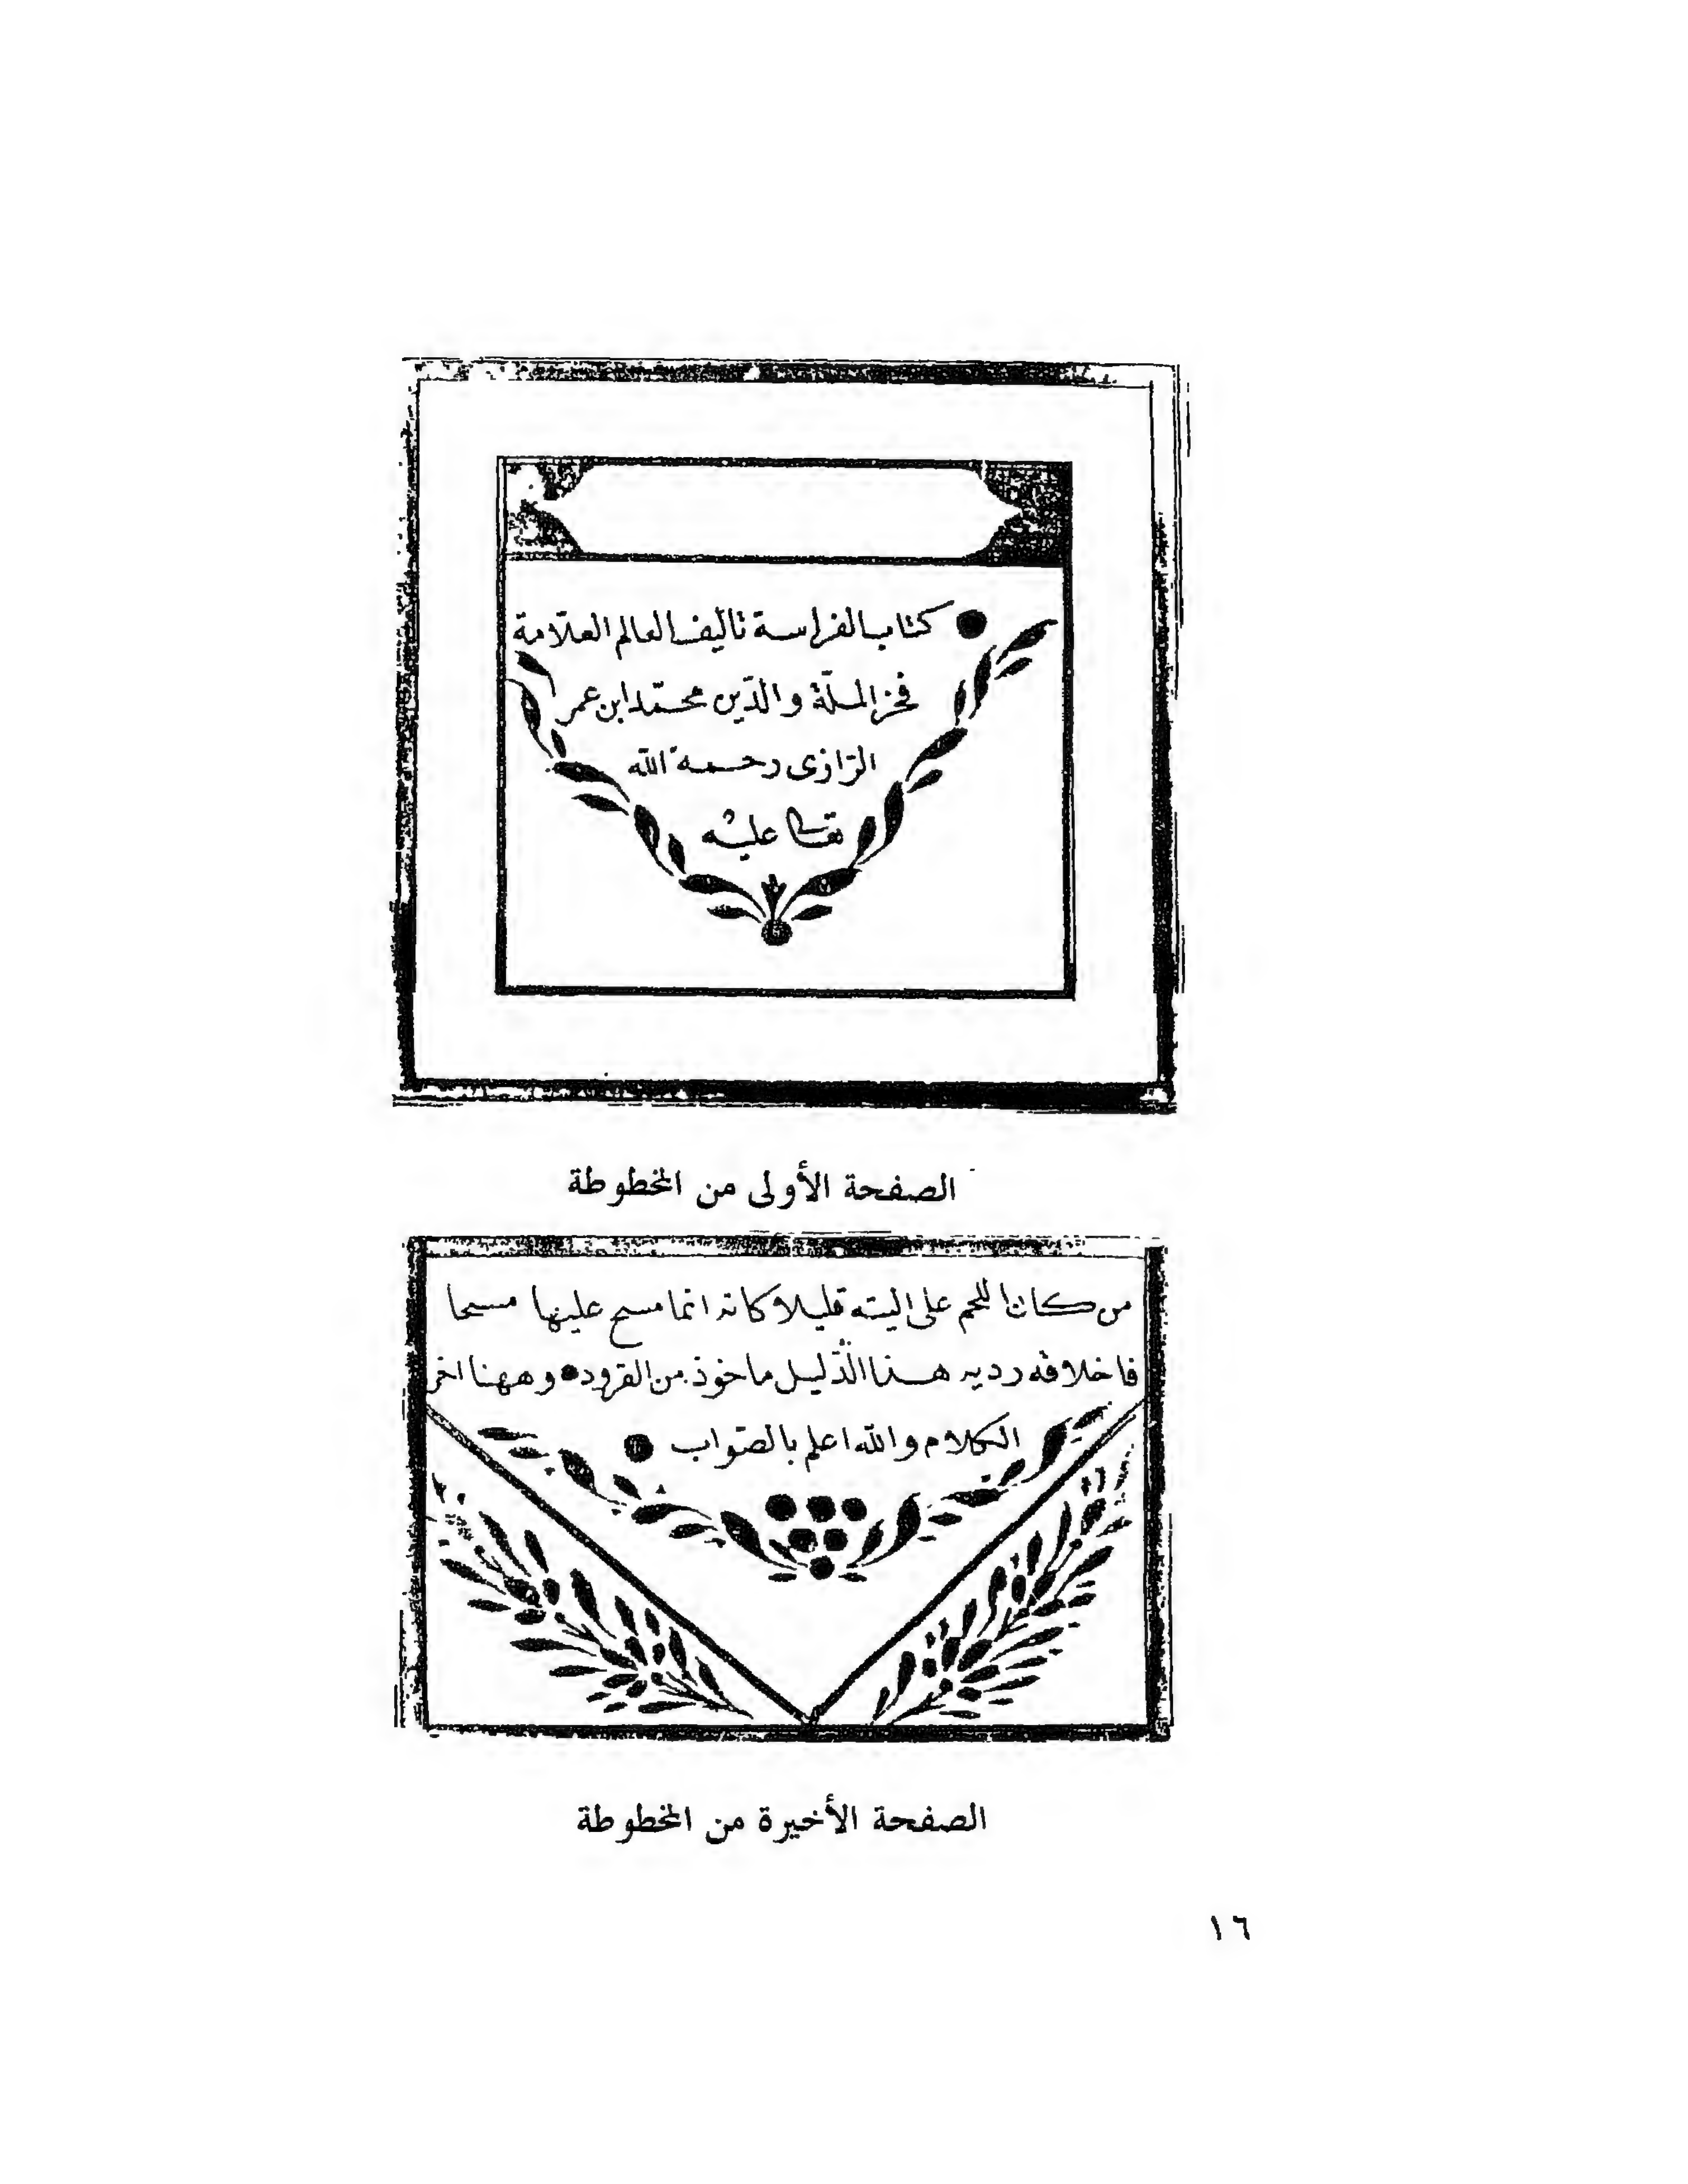 كتاب الفراسة تأليف العالم العلّامة
فخر الملّة والدّين محمّد ابن عمر
الرّازى رحمة اللّه
تعالى عليه
الصفحة الأولى من المخطوطة
من كان اللحم على اليته قليلا كانه انما مسح عليها مسحا
فاخلاقه رديه هذا الدّليل ماخوذ من القرود وههنا اخر
الكلام واللّه اعلم بالصّواب
الصفحة الأخيرة من المخطوطة
١٦